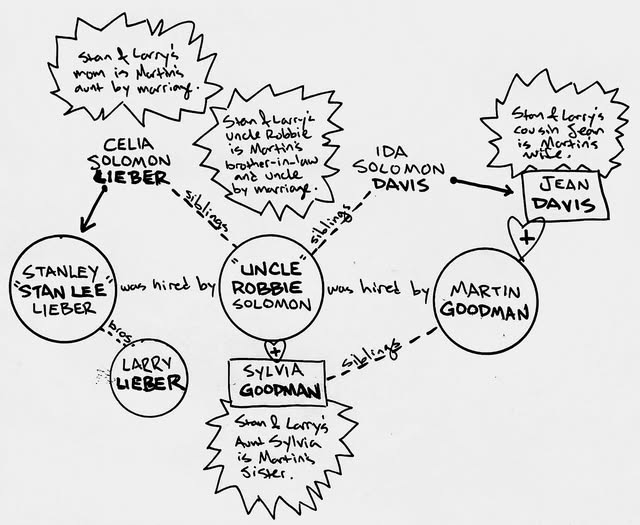 Stan & Larry's
mom is Martin's
aunt by marriage.
Stan & Larry's
uncle Robbie
is Martin's
brother-in-law
and uncle
by marriage.
Stan & Larry's
cousin Jean
is Martin's
wife.
CELIA
SOLOMON
LIEBER
siblings
siblings
IDA
SOLOMON
DAVIS
JEAN
DAVIS
+
STANLEY
"STAN LEE"
LIEBER
was hired by
"UNCLE"
ROBBIE
SOLOMON
was hired by
MARTIN
GOODMAN
bros
LARRY
LIEBER
+
SYLVIA
GOODMAN
siblings
Stan & Larry's
Aunt Sylvia
is Martin's
sister.